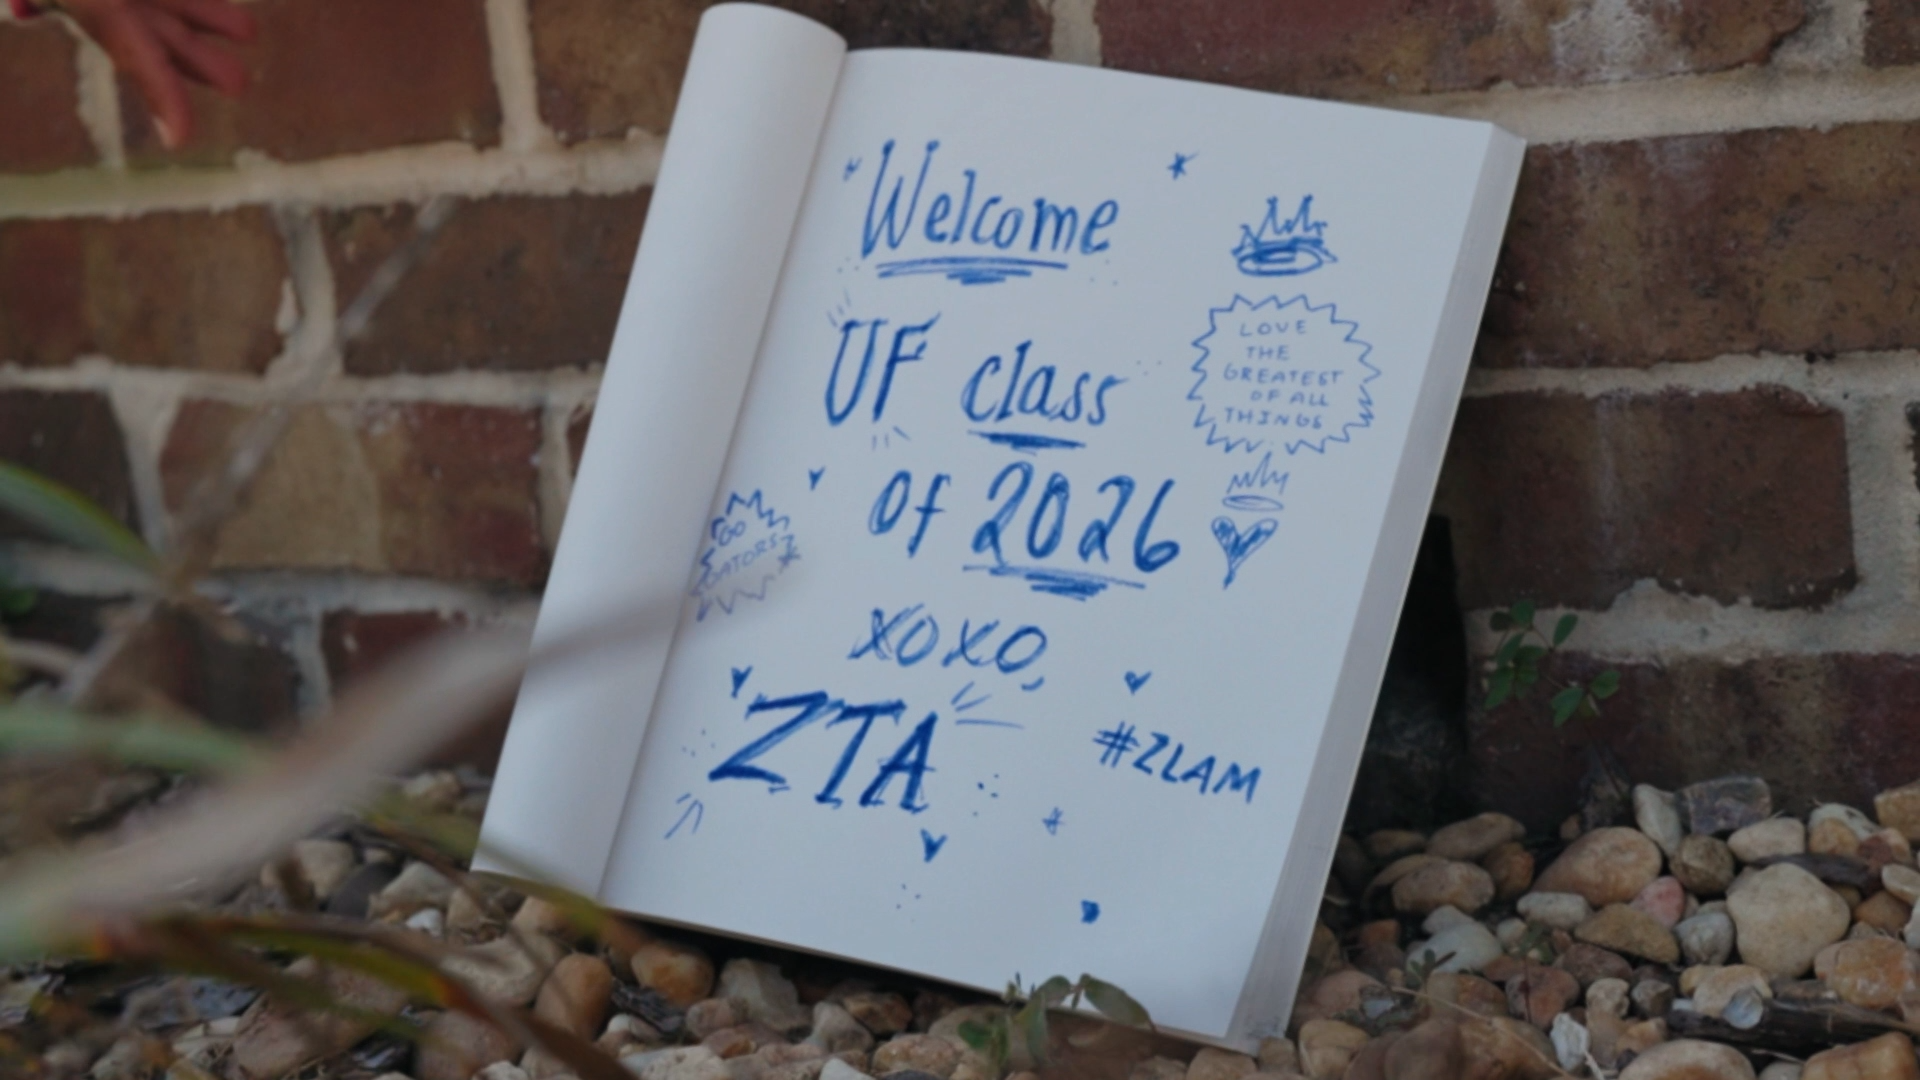 Welcome
UF class
of 2026
xoxo,
ZTA
#ZLAM
LOVE
THE
GREATEST
OF ALL
THINGS
GO
GATORS